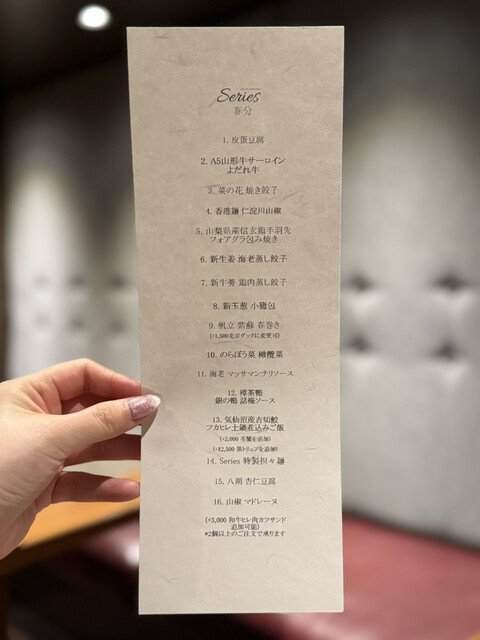 Series
春分
1. 皮蛋豆腐
2. A5山形牛サーロイン
よだれ牛
3. 菜の花 焼き餃子
4. 香港麺 仁淀川山椒
5. 山梨県産信玄鶏手羽先
フォアグラ包み焼き
6. 新生姜 海老蒸し餃子
7. 新牛蒡 鶏肉蒸し餃子
8. 新玉葱 小籠包
9. 帆立 紫蘇 春巻き
(+1,500北京ダックに変更可)
10. のらぼう菜 橄欖菜
11. 海老 マッサマンチリソース
12. 樟茶鴨
銀の鴨 話梅ソース
13. 気仙沼産吉切鮫
フカヒレ土鍋煮込みご飯
(+2,000 毛蟹を追加)
(+¥2,500 黒トリュフを追加)
14. Series 特製担々麺
15. 八朔 杏仁豆腐
16. 山椒 マドレーヌ
(+3,000 和牛ヒレ肉カツサンド
追加可能)
*2個以上のご注文で承ります